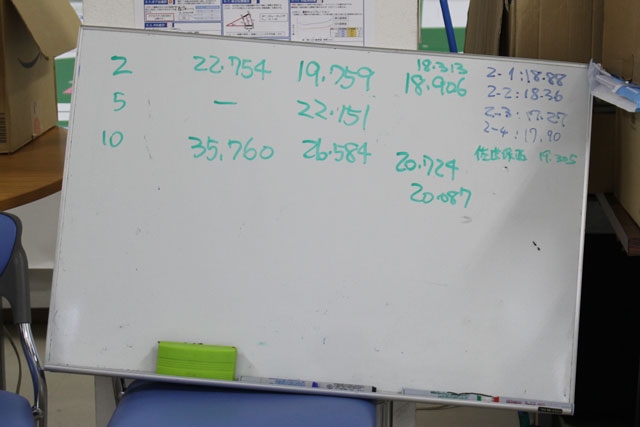 2 22.754 19.759 18.313
18.906
5 — 22.151
10 35.760 26.584 20.724
20.087
2-1:18.88
2-2:18.36
2-3:17.27
2-4:17.90
19.305